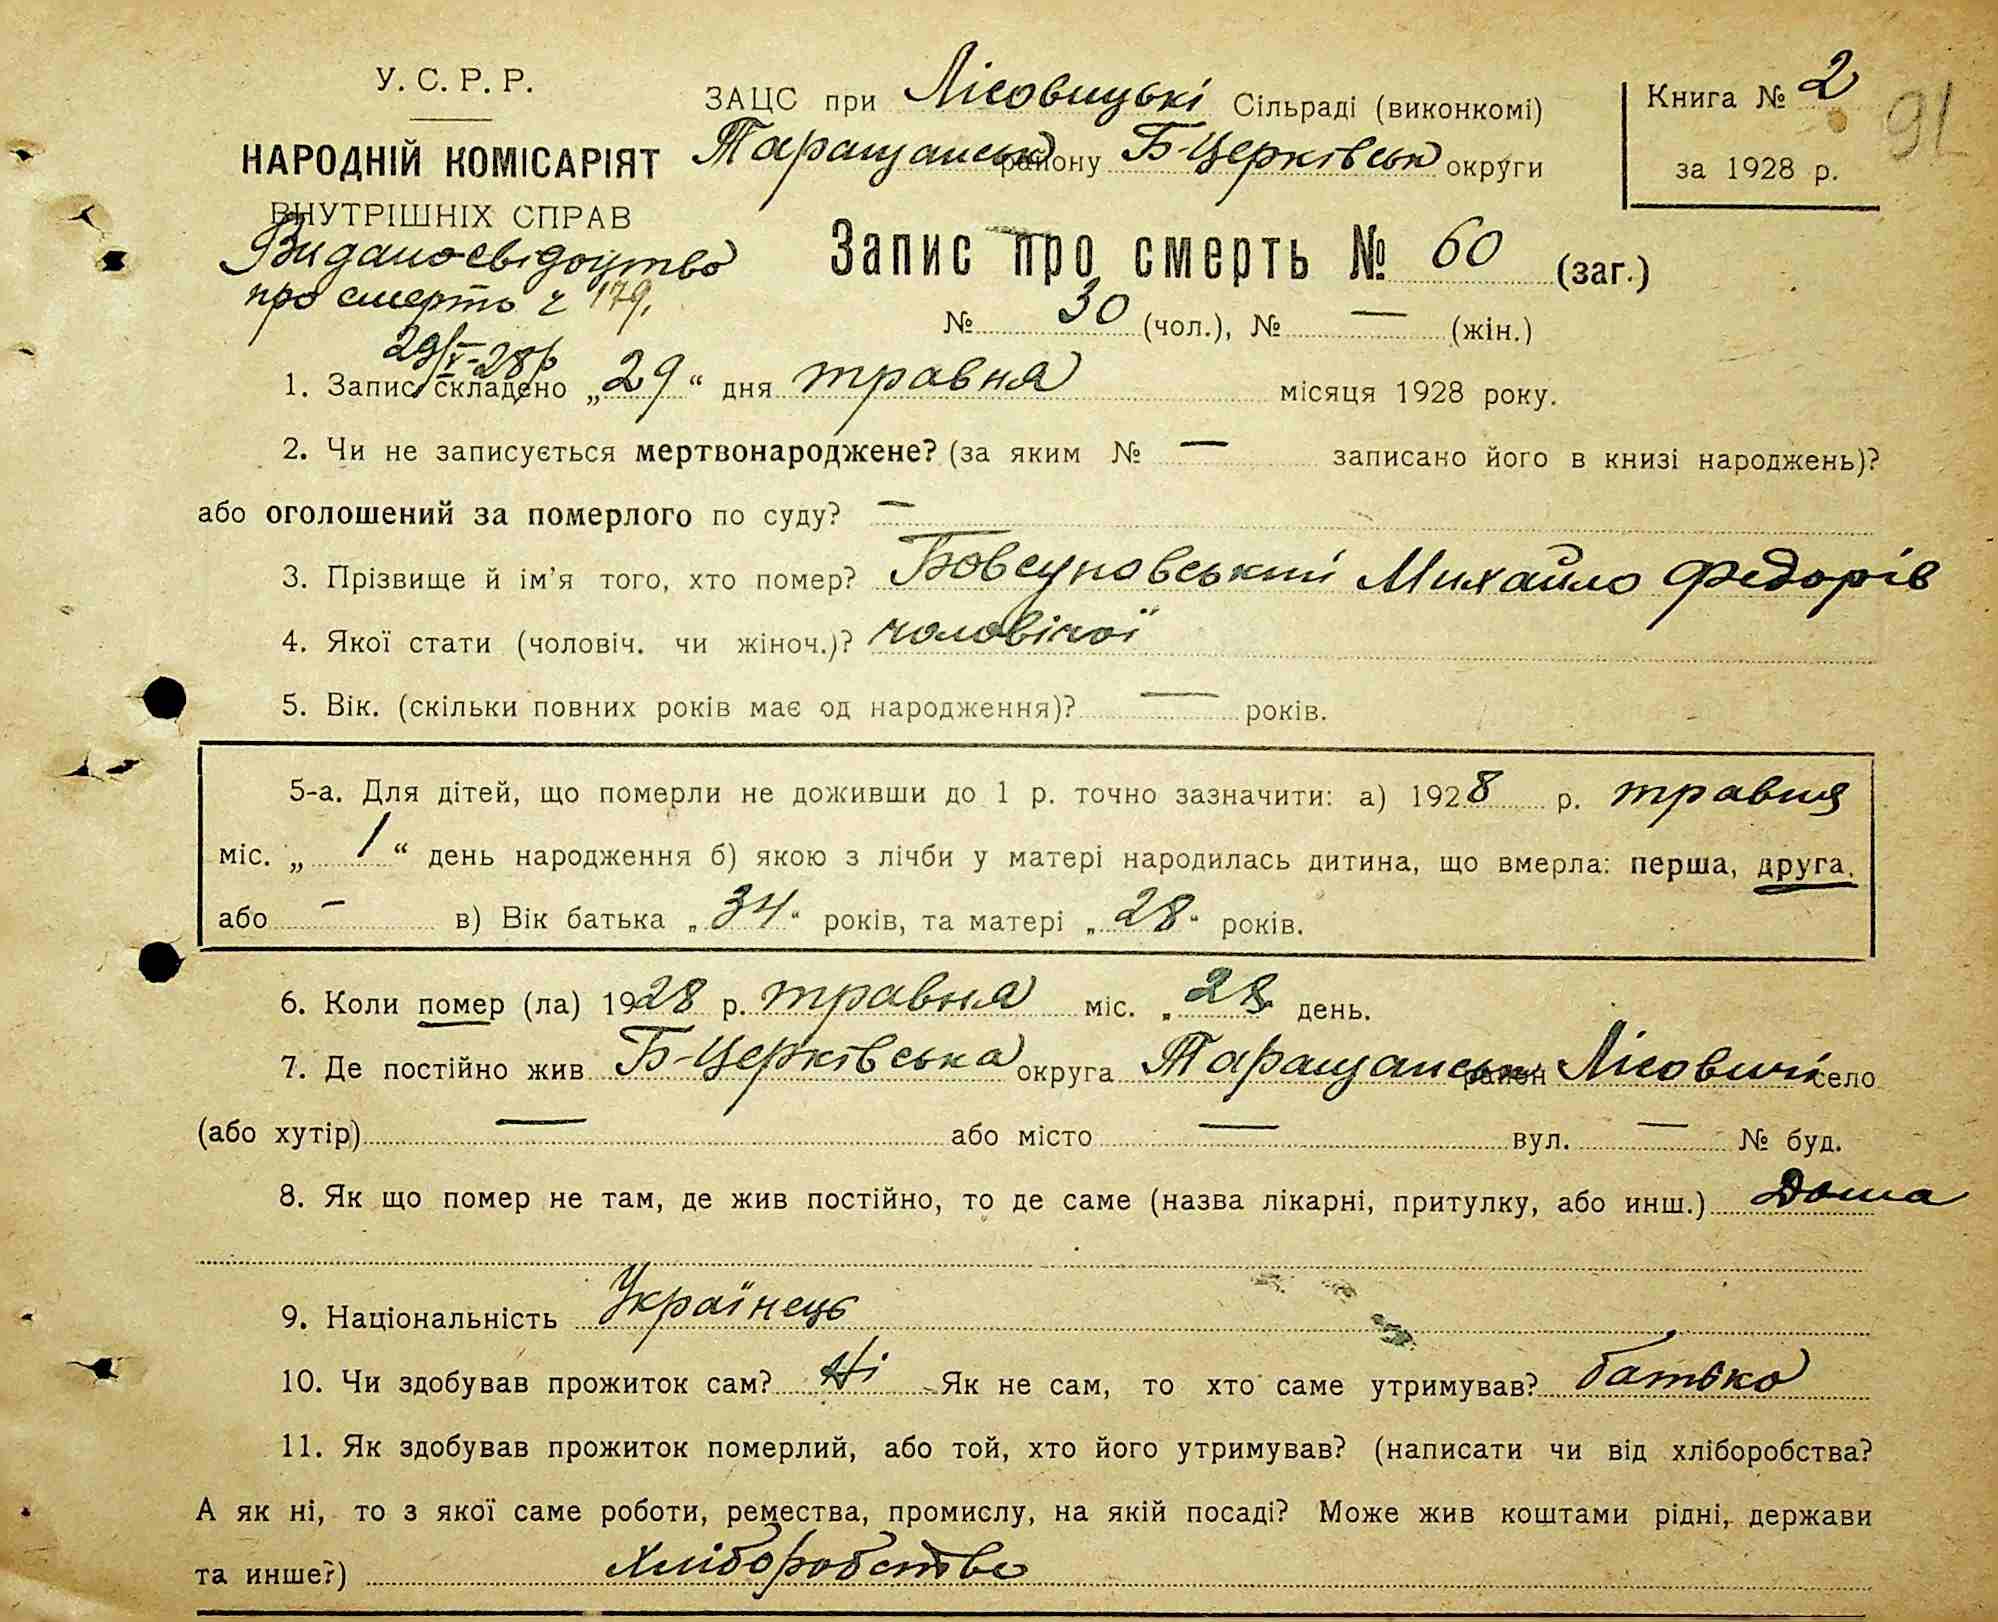 У. С. Р. Р.
НАРОДНІЙ КОМІСАРІЯТ
ВНУТРІШНІХ СПРАВ
Видано свідоцтво
про смерть ч 179.
29/V-28р
ЗАЦС при Лісовицькі Сільраді (виконкомі)
Таращанськ району Б-Церківськ округи
Книга № 2
за 1928 р.
91
Запис про смерть № 60 (заг.)
№ 30 (чол.), № — (жін.)
1. Запис складено „29“ дня травня місяця 1928 року.
2. Чи не записується мертвонароджене? (за яким № — записано його в книзі народжень)?
або оголошений за померлого по суду? —
3. Прізвище й ім'я того, хто помер? Бовсуновський Михайло Федорів
4. Якої стати (чоловіч. чи жіноч.)? чоловічої
5. Вік. (скільки повних років має од народження)? — років.
5-а. Для дітей, що померли не доживши до 1 р. точно зазначити: а) 1928 р. травня
міс. „1“ день народження б) якою з лічби у матері народилась дитина, що вмерла: перша, друга,
або — в) Вік батька „34“ років, та матері „28“ років.
6. Коли помер (ла) 1928 р. травня міс. „28“ день.
7. Де постійно жив Б-Церківська округа Таращанськ район Лісовичі село
(або хутір) — або місто — вул. — № буд.
8. Як що помер не там, де жив постійно, то де саме (назва лікарні, притулку, або инш.) Дома
9. Національність Українець
10. Чи здобував прожиток сам? Ні Як не сам, то хто саме утримував? батько
11. Як здобував прожиток померлий, або той, хто його утримував? (написати чи від хліборобства?
А як ні, то з якої саме роботи, ремества, промислу, на якій посаді? Може жив коштами рідні, держави
та инше?) Хліборобство